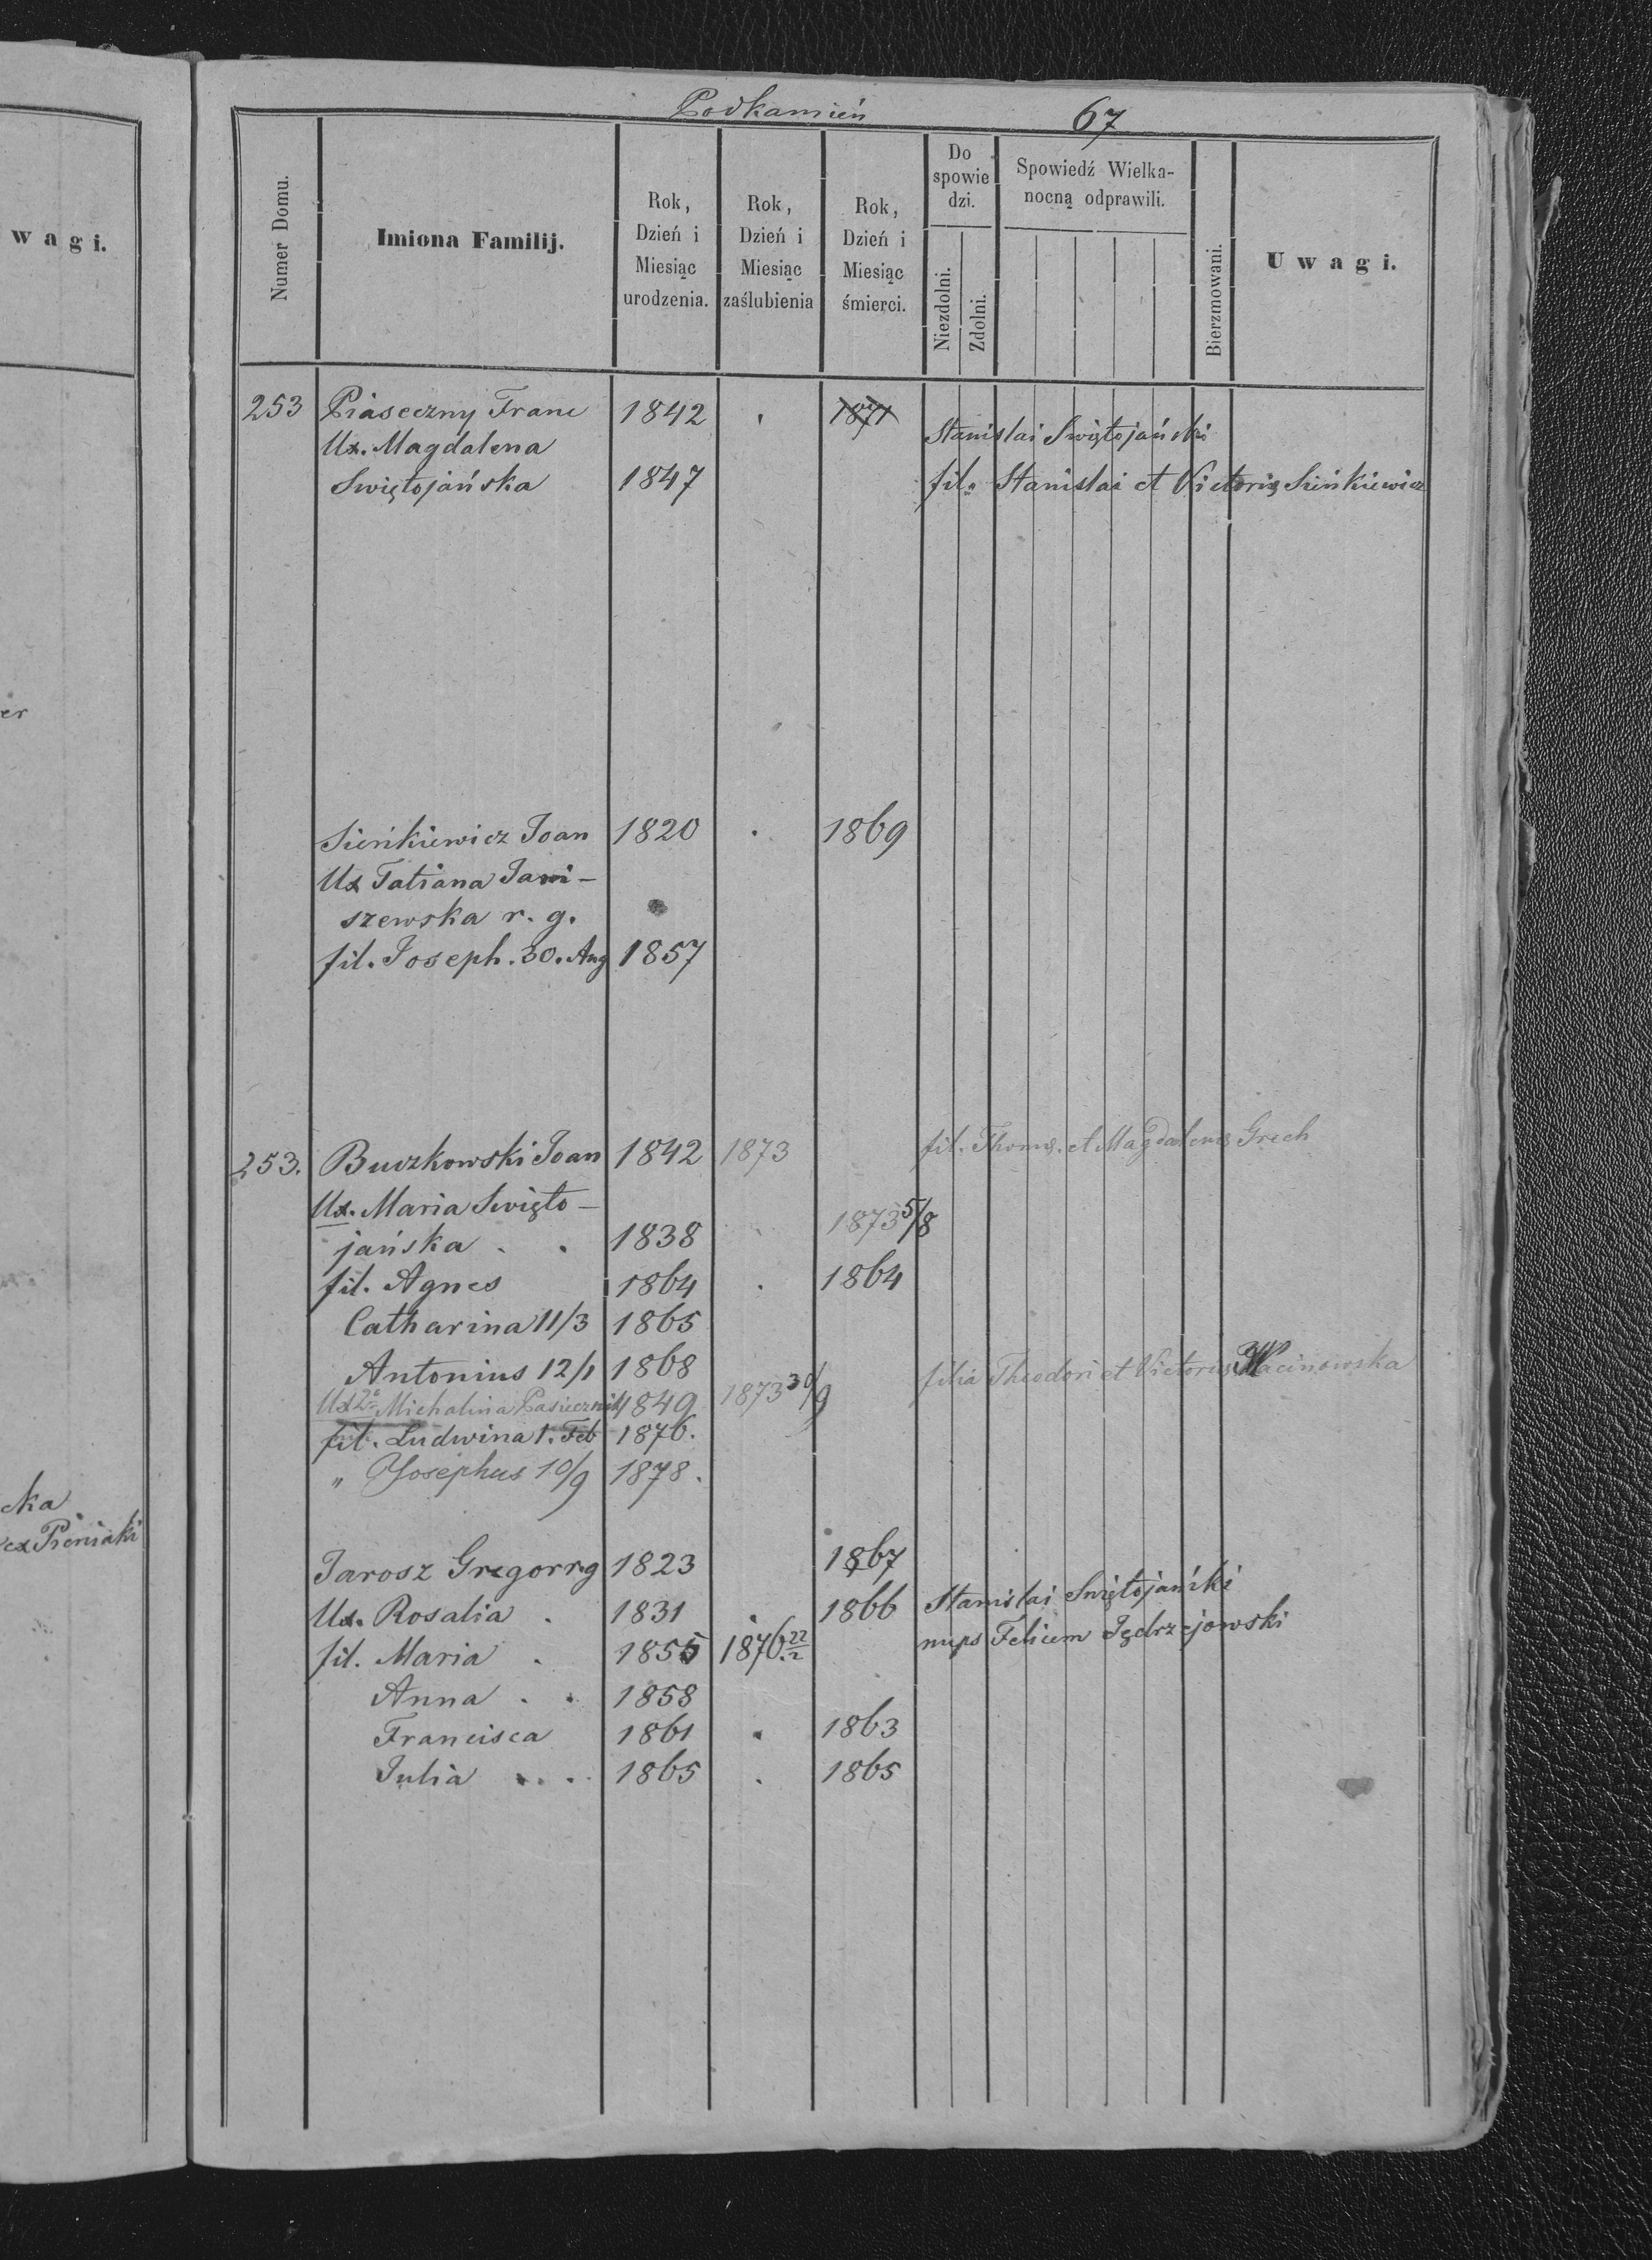 Podkamień 67
w a g i.
Numer Domu.
Imiona Familij.
Rok, Dzień i Miesiąc urodzenia.
Rok, Dzień i Miesiąc zaślubienia
Rok, Dzień i Miesiąc śmierci.
Do spowie dzi.
Niezdolni.
Zdolni.
Spowiedź Wielka-
nocną odprawili.
Bierzmowani.
U w a g i.
253 Piaseczny Franc 1842 . 1871
Ux. Magdalena Stanislai Swiętojański
Swiętojańska 1847 fil. Stanislai et Victorię Sieńkiewicz
er
Sieńkiewicz Joan 1820 . 1869
Ux Tatiana Jawi-
szewska r. g.
fil. Joseph. 30. Aug 1857
253. Buczkowski Joan 1842 1873 fil. Thomę. et Magdalenę Grech
Ux. Maria Swięto-
jańska . . 1838 1873 5/8
fil. Agnes 1864 . 1864
Catharina 11/3 1865
Antonius 12/1 1868
Ux 2o Michalina Pasiecznik 1849 1873 30/9 filia Theodori et Victorię Wacinowska
fil. Ludwina 1. Feb 1876.
" Josephus 10/9 1878.
cka
ex Pieniaki
Jarosz Gregor r.g 1823 1867
Ux. Rosalia . 1831 . 1866 Stanislai Swiętojański
fil. Maria . 1855 1876 22/2 nups Felicem Jędrzejowski
Anna . . 1858
Francisca 1861 . 1863
Julia . . . 1865 . 1865